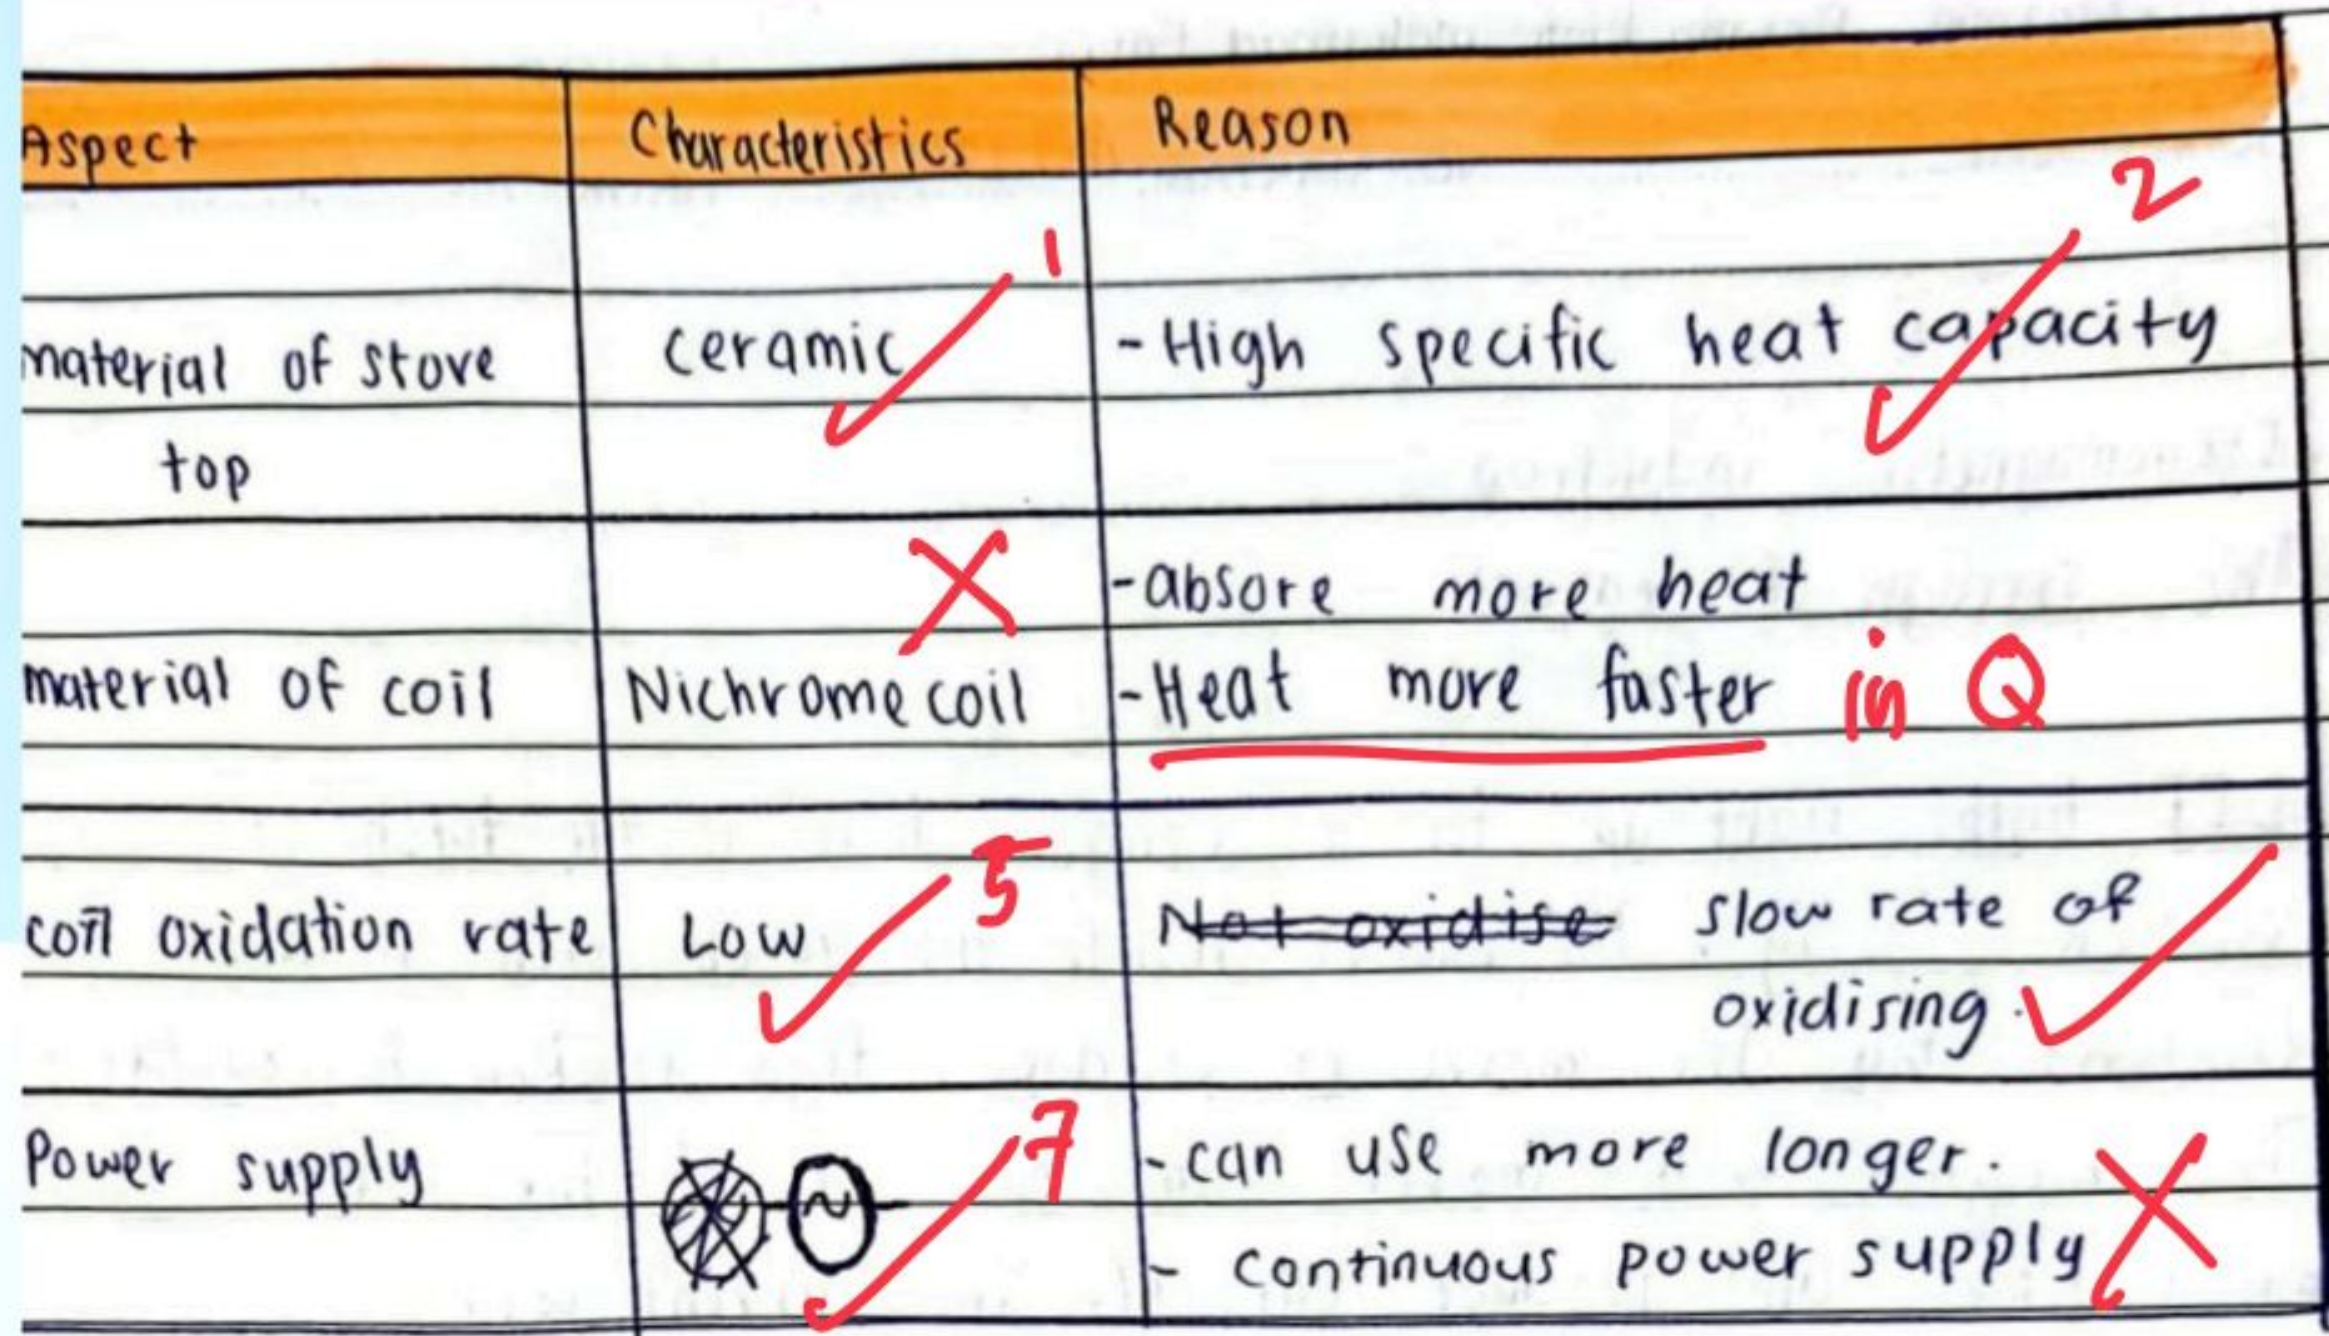 Aspect Characteristics Reason
1 2
material of stove ceramic - High specific heat capacity
top
- absore more heat
material of coil Nichrome coil - Heat more faster in Q
5
coil oxidation rate Low Not oxidise slow rate of
oxidising.
7
Power supply ~ - can use more longer.
- continuous power supply